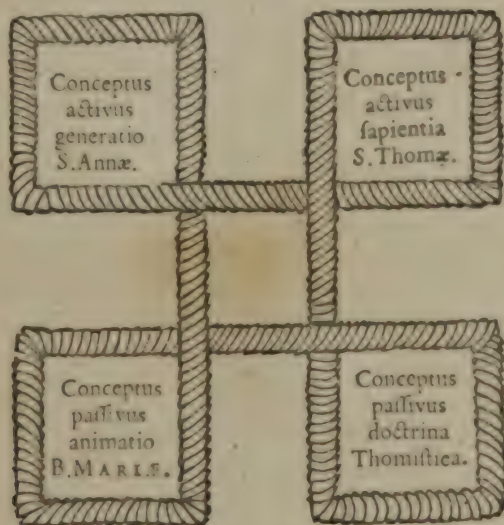 Conceptus
activus
generatio
S. Annæ.
Conceptus
activus
ſapientia
S. Thomæ.
Conceptus
paſſivus
animatio
B. MARIÆ.
Conceptus
paſſivus
doctrina
Thomiſtica.